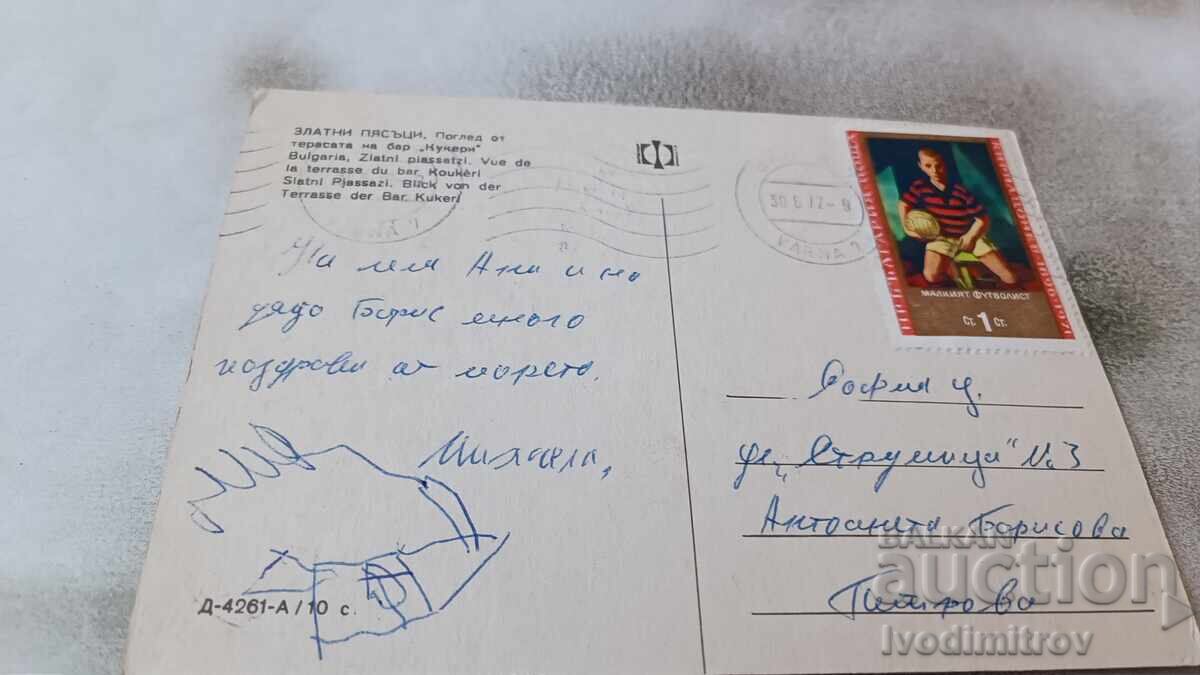 ЗЛАТНИ ПЯСЪЦИ. Поглед от
терасата на бар „Кукери"
Bulgaria, Zlatni piassatzi. Vue de
la terrasse du bar Koukéri
Slatni Pjassazi. Blick von der
Terrasse der Bar Kukeri
На леля Ани и на
дядо Борис много
поздрави от морето.
Михаела,
Д-4261-А/10 с.
VARNA
МАЛКИЯТ ФУТБОЛИСТ
Ст. 1 Ст.
София ц.
ул. „Струмица" №3
Антоанета Борисова
Петрова
BALKAN
auction
Ivodimitrov